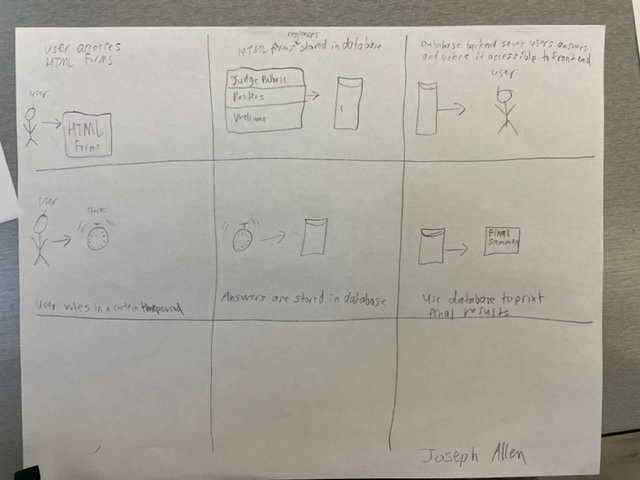 User accesses
HTML Forms
user
HTML
Forms
responses
HTML forms stored in database
Judge Rubric
Posters
Welcome
Database backend saves users answers
and makes it accessible to front end
user
user
clock
User votes in a certain time period
Answers are stored in database
Final
Summary
Use database to print
final results
Joseph Allen